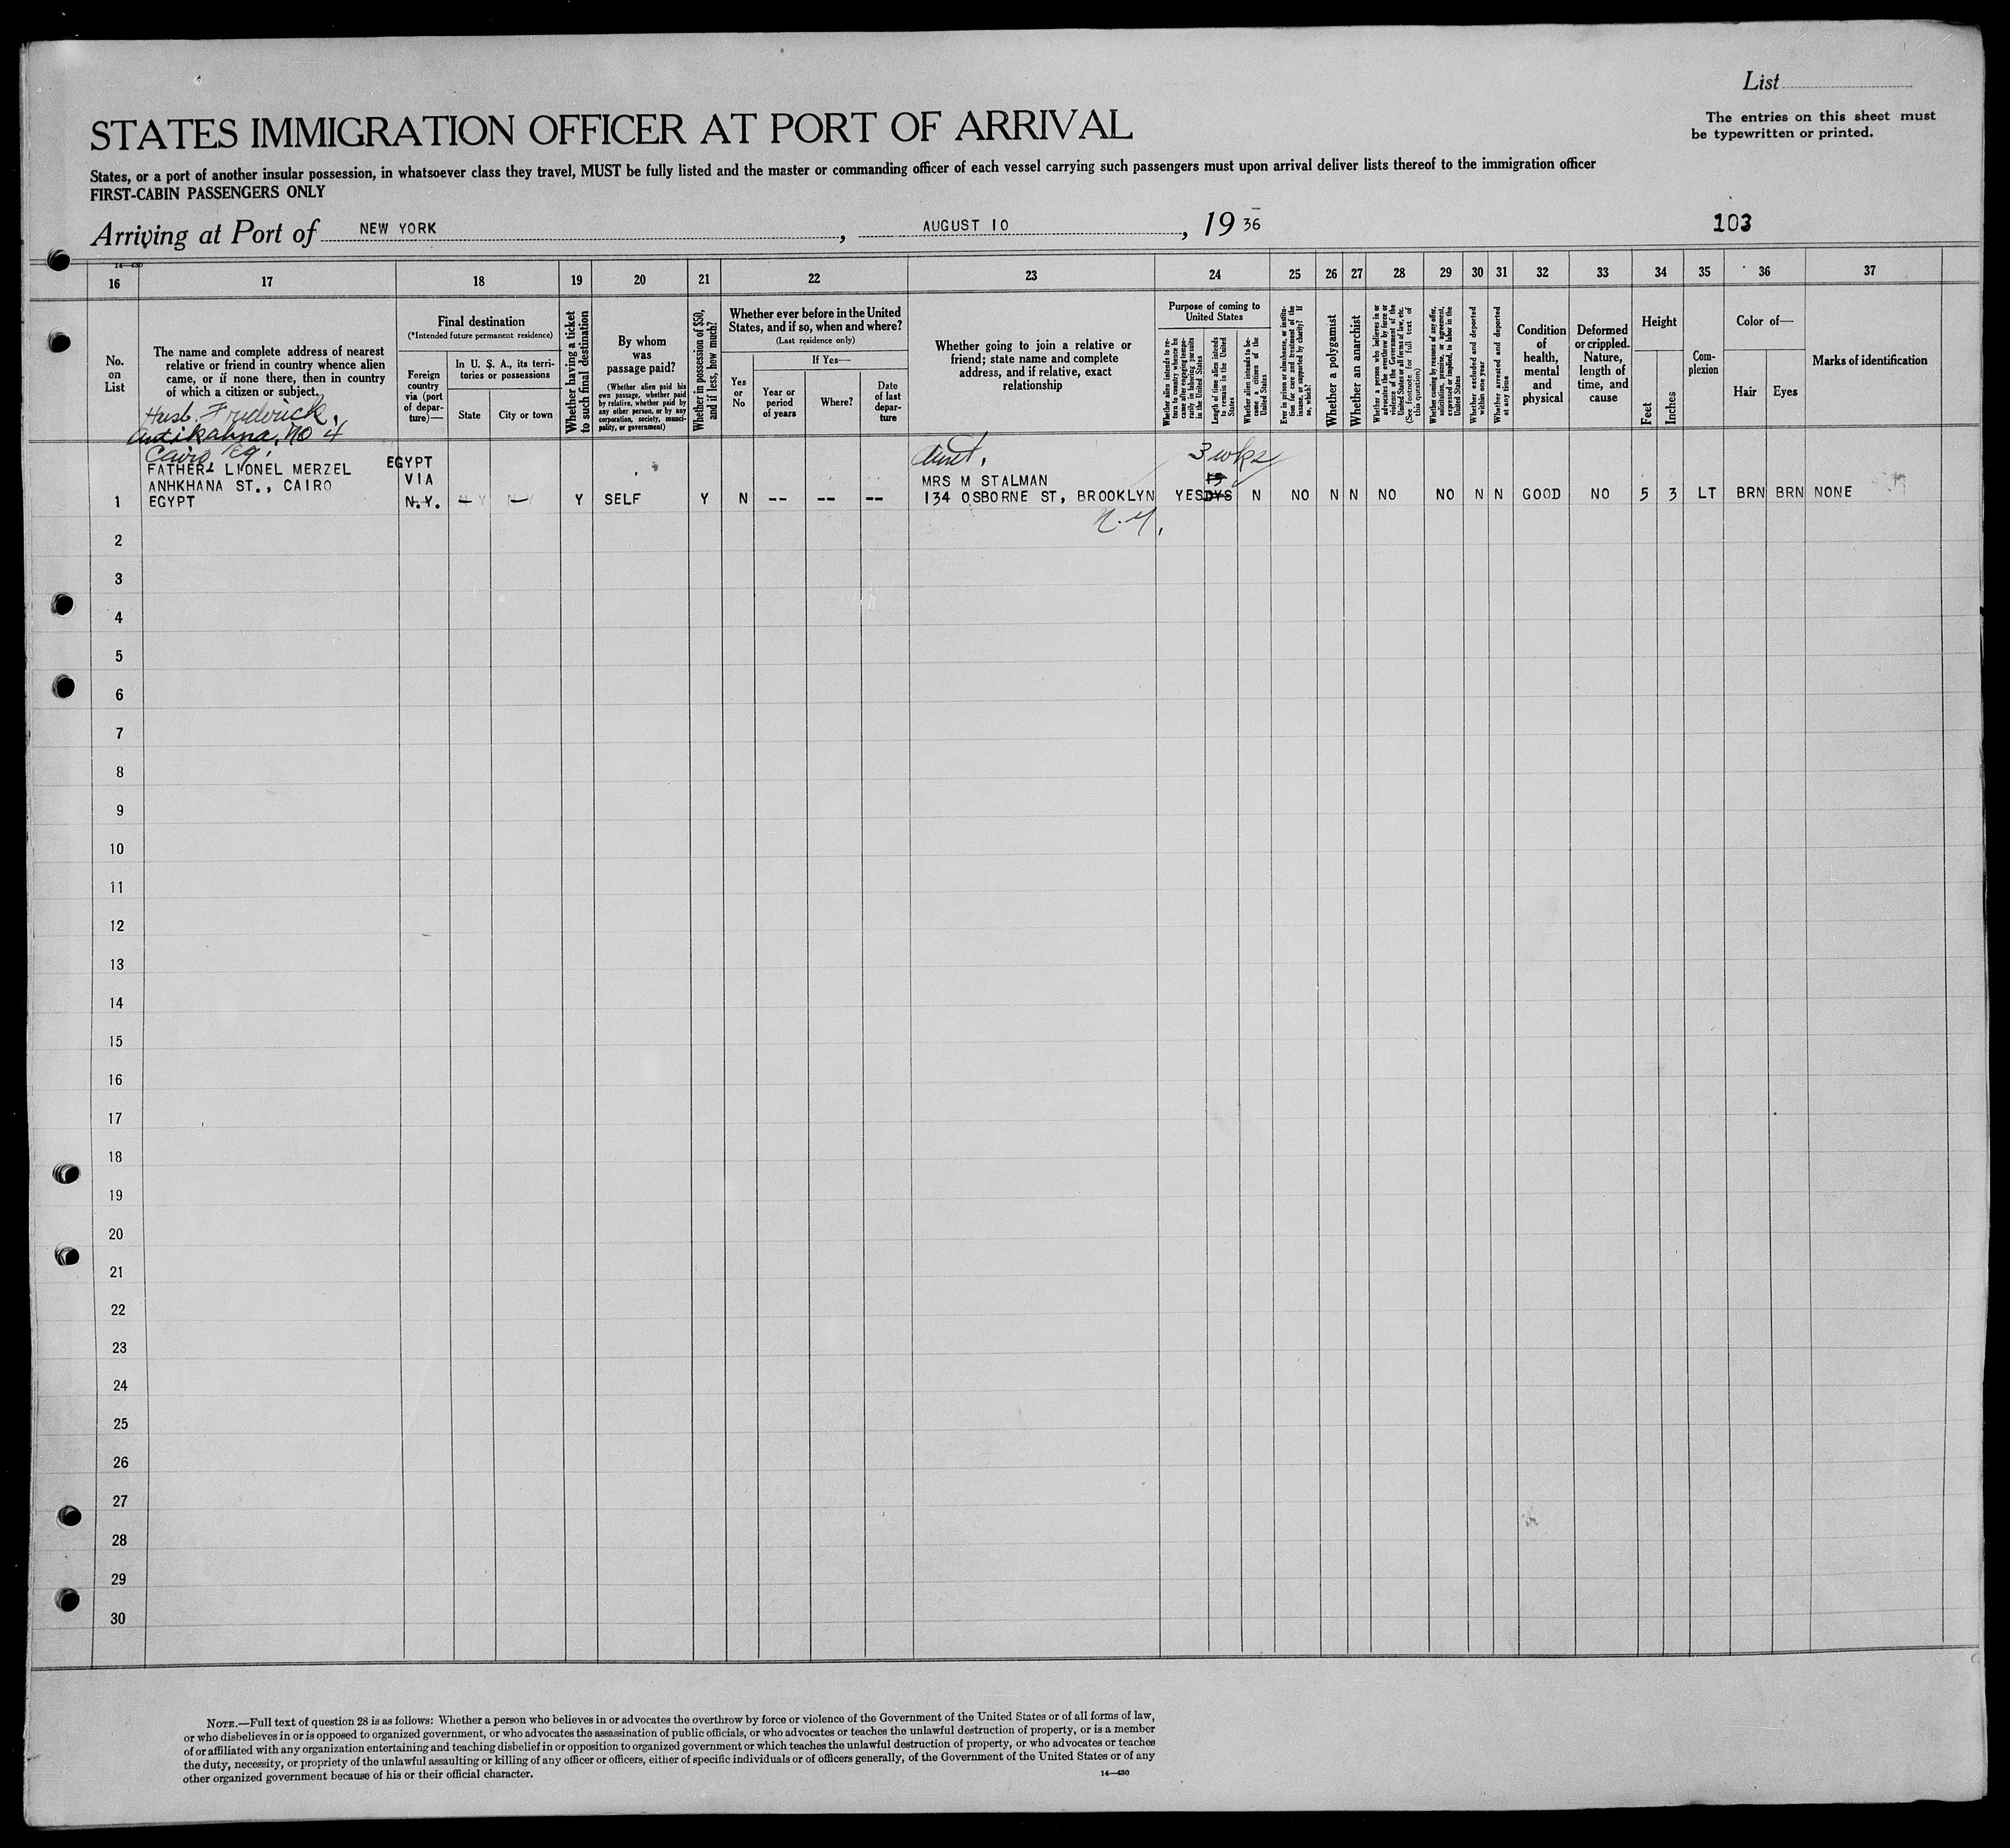 List
The entries on this sheet must
be typewritten or printed.
STATES IMMIGRATION OFFICER AT PORT OF ARRIVAL
States, or a port of another insular possession, in whatsoever class they travel, MUST be fully listed and the master or commanding officer of each vessel carrying such passengers must upon arrival deliver lists thereof to the immigration officer
FIRST-CABIN PASSENGERS ONLY
Arriving at Port of NEW YORK, AUGUST 10, 19 36
103
14—430
16 17 18 19 20 21 22 23 24 25 26 27 28 29 30 31 32 33 34 35 36 37
No.
on
List
The name and complete address of nearest
relative or friend in country whence alien
came, or if none there, then in country
of which a citizen or subject.
Final destination
(*Intended future permanent residence)
Foreign
country
via (port
of depar-
ture)—
In U. S. A., its terri-
tories or possessions
State
City or town
Whether having a ticket
to such final destination
By whom
was
passage paid?
(Whether alien paid his
own passage, whether paid
by relative, whether paid by
any other person, or by any
corporation, society, munici-
pality, or government)
Whether in possession of $50,
and if less, how much?
Whether ever before in the United
States, and if so, when and where?
(Last residence only)
Yes
or
No
If Yes—
Year or
period
of years
Where?
Date
of last
depar-
ture
Whether going to join a relative or
friend; state name and complete
address, and if relative, exact
relationship
Purpose of coming to
United States
Whether alien intends to re-
turn to country whence he
came after engaging tempo-
rarily in laboring pursuits
in the United States
Length of time alien intends
to remain in the United
States
Whether alien intends to be-
come a citizen of the
United States
Ever in prison or almshouse, or institu-
tion for care and treatment of the
insane, or supported by charity? If
so, which?
Whether a polygamist
Whether an anarchist
Whether a person who believes in or
advocates the overthrow by force or
violence of the Government of the
United States or all forms of law, etc.
(See footnote for full text of
this question)
Whether coming by reasons of any offer,
solicitation, promise, or agreement,
expressed or implied, to labor in the
United States
Whether excluded and deported
within one year
Whether arrested and deported
at any time
Condition
of
health,
mental
and
physical
Deformed
or crippled.
Nature,
length of
time, and
cause
Height
Feet
Inches
Com-
plexion
Color of—
Hair
Eyes
Marks of identification
Husb. Frederick,
Antikahna, No 4
Cairo Eg.
FATHER LIONEL MERZEL
ANHKHANA ST., CAIRO
EGYPT
EGYPT
VIA
N.Y.
Y SELF Y N -- -- --
Aunt,
MRS M STALMAN
134 OSBORNE ST, BROOKLYN
N.Y.
3 wks
YES DYS N NO N N NO NO N N GOOD NO 5 3 LT BRN BRN NONE
1
2
3
4
5
6
7
8
9
10
11
12
13
14
15
16
17
18
19
20
21
22
23
24
25
26
27
28
29
30
NOTE.—Full text of question 28 is as follows: Whether a person who believes in or advocates the overthrow by force or violence of the Government of the United States or of all forms of law,
or who disbelieves in or is opposed to organized government, or who advocates the assassination of public officials, or who advocates or teaches the unlawful destruction of property, or is a member
of or affiliated with any organization entertaining and teaching disbelief in or opposition to organized government or which teaches the unlawful destruction of property, or who advocates or teaches
the duty, necessity, or propriety of the unlawful assaulting or killing of any officer or officers, either of specific individuals or of officers generally, of the Government of the United States or of any
other organized government because of his or their official character.
14—430